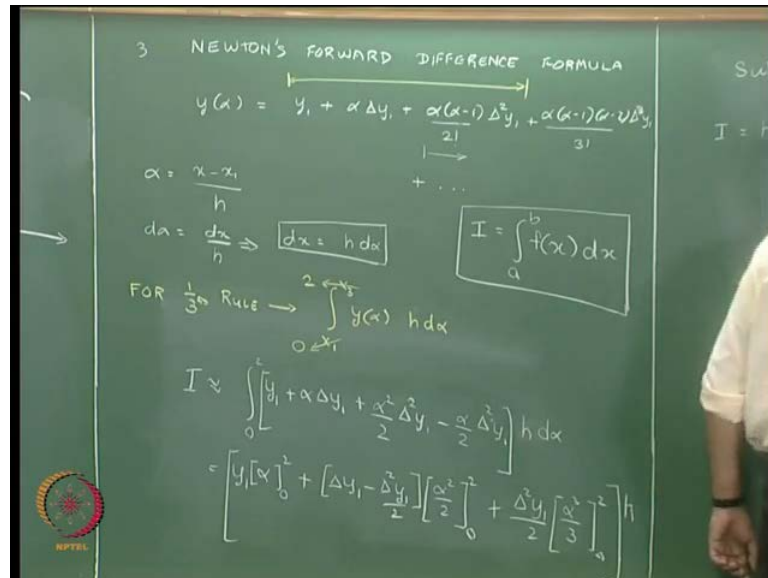 3 NEWTON'S FORWARD DIFFERENCE FORMULA
y(α) = y₁ + αΔy₁ + α(α-1)/2! Δ²y₁ + α(α-1)(α-2)Δ³y₁/3!
+ ...
α = x - x₁/h
dα = dx/h ⇒ dx = h dα
I = ∫ₐᵇ f(x) dx
FOR 1/3 RULE → ∫ y(α) h dα
2 ← x₃
0 ← x₁
I ≈ ∫₀² [y₁ + αΔy₁ + α²/2 Δ²y₁ - α/2 Δ²y₁] h dα
= [y₁[α]₀² + [Δy₁ - Δ²y₁/2][α²/2]₀² + Δ²y₁/2 [α³/3]₀²] h
I = h
NPTEL